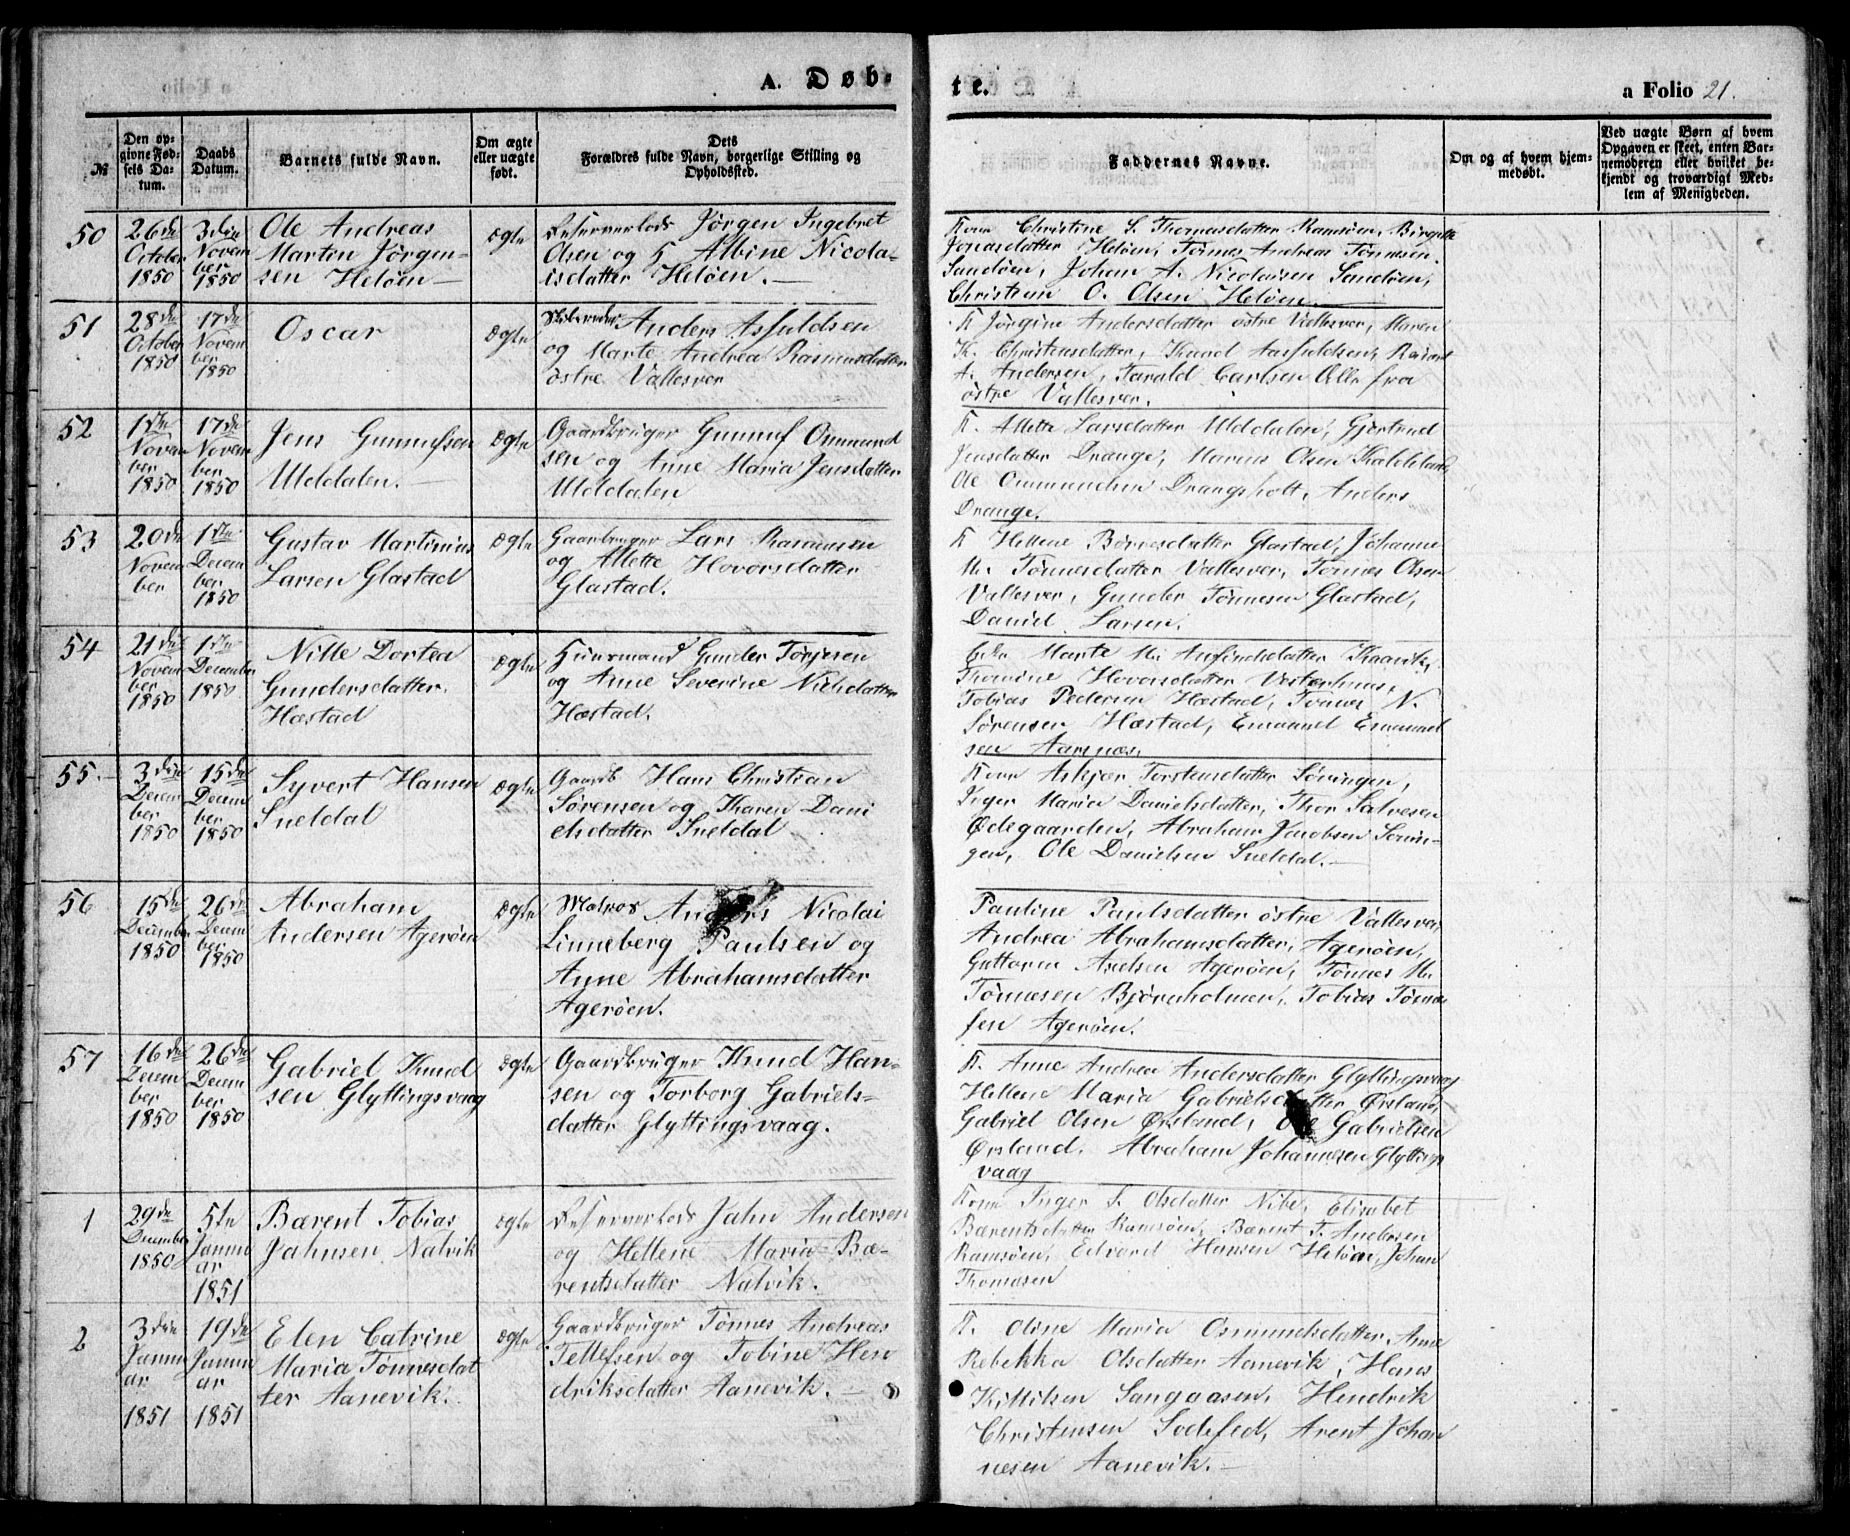 A. Døb-
te.
a Folio 21.
№
Den op-
givne Fød-
sels Da-
tum.
Daabs
Datum.
Barnets fulde Navn.
Om ægte
eller uægte
født.
Dets
Forældres fulde Navn, borgerlige Stilling og
Opholdssted.
Faddernes Navne.
Om og af hvem hjem-
medøbt.
Ved uægte Børn af hvem
Opgaven er skeet, enten Bar-
nemoderen eller hvilket be-
kjendt og troværdigt Med-
lem af Menigheden.
50
26de
October
1850
3die
Novem
ber
1850
Ole Andreas
Marten Jørgen-
sen Heløen
ægte
Reserverlods Jørgen Ingebret
Olsen og H Albine Nicola-
isdatter Heløen.
Kone Christine S. Thomasdatter Ramsøen, Birgitte
Jonasdatter Heløen, Tønnes Andreas Tønnesen
Sandøen, Johan A. Nicolaisen Sandøen,
Christian O. Olsen Heløen
51
28de
October
1850
17de
Novem
ber
1850
Oscar
ægte
Anders Asfuldsen
og Marte Andrea Rasmusdatter
østre Vallesver
K Jørgine Andersdatter østre Vallesver, Maren
K. Christensdatter, Knud Aasfuldsen,
A. Andersen, Tarald Carlsen Alle fra
østre Vallesver.
52
1ste
Novem
ber
1850
17de
Novem
ber
1850
Jens Gunnufsen
Ulddalen.
ægte
Gaardbruger Gunnuf Ommund
sen og Anne Maria Jensdatter
Ulddalen
K. Allette Larsdatter Ulddalen, Gjertrud
Jensdatter Drange, Marius Olsen
Ole Ommundsen Drangsholt, Anders
Drange.
53
20de
Novem
ber
1ste
Decem
ber
1850
Gustav Martinius
Larsen Glastad
ægte
Gaarbruger Lars Rasmusen
og Allette Hovorsdatter
Glastad.
K Hellene Børresdatter Glastad, Johanne
M. Tønnesdatter Vallesver, Tønnes Olsen
Vallesver, Gunder Tønnesen Glastad,
Daniel Larsen.
54
21de
Novem
ber
1850
1ste
December
1850
Nille Dortea
Gundersdatter
Hæstad
ægte
Huusmand Gunder Torjesen
og Anne Severine Nielsdatter
Hæstad.
Marte M. Anfindsdatter
Thomine Hovorsdatter Vesterhuus,
Tobias Pedersen Hæstad, Tønnes N.
Sørensen Hæstad, Emanuel Emanuel
sen Aarsnæs.
55.
3die
Decem
ber
1850
15de
Decem
ber
1850
Syvert Hansen
Sneldal
ægte
Gaardb Hans Christian
Sørensen og Karen Dani
elsdatter Sneldal
Kone Askjær Torstensdatter Søringen,
Inger Maria Danielsdatter, Thor Salvesen
Ødegaarden, Abraham Jacobsen Sørin-
gen, Ole Danielsen Sneldal.
56
15de
December
1850
26de
Decem
ber
1850
Abraham
Andersen Agerøen
ægte
Matros Anders Nicolai
Linneberg Paulsen og
Anne Abrahamsdatter
Agerøen.
Pauline Paulsdatter østre Vallesver,
Andrea Abrahamsdatter, Agerøen,
Guttorm Axelsen Agerøen, Tønnes M.
Tønnesen Bjørnholmen, Tobias Tønne
sen Agerøen.
57
16de
Decem
ber
1850
26de
Decem
ber
1850
Gabriel Knud
sen Glyttingsvaag
ægte
Gaardbruger Knud Han-
sen og Torborg Gabriels-
datter Glyttingsvaag.
K. Anne Andrea Andersdatter Glyttingsvaag
Hellene Maria Gabrielsdatter Ørsland,
Gabriel Olsen Ørsland, Ole Gabrielsen
Ørsland, Abraham Johannesen Glyttings
vaag
1
29de
December
1850
5te
Janu
ar
1851
Bærent Tobias
Jahnsen Natvik
ægte
Reserverlods Jahn Andersen
og Hellene Maria Bæ-
rentsdatter Natvik.
Kone Inger S. Olsdatter Nibe, Elisabet
Bærentsdatter Ramsøen, Bærent T. Andersen
Ramsøen, Edvard Hansen Heløen, Johan
Thomesen
2
3die
Janu
ar
1851
19de
Janu
ar
1851
Elen Catrine
Maria Tønnesdat
ter Aanevik.
ægte
Gaardbruger Tønnes Andreas
Tellefsen og Tobine Hen
driksdatter Aanevik.
K. Oline Maria Osmundsdatter, Anne
Rebekka Olsdatter Aanevik, Hans
Kittilsen Sangaasen, Hendrik
Christensen Sodefed, Arent Johan
nesen Aanevik.